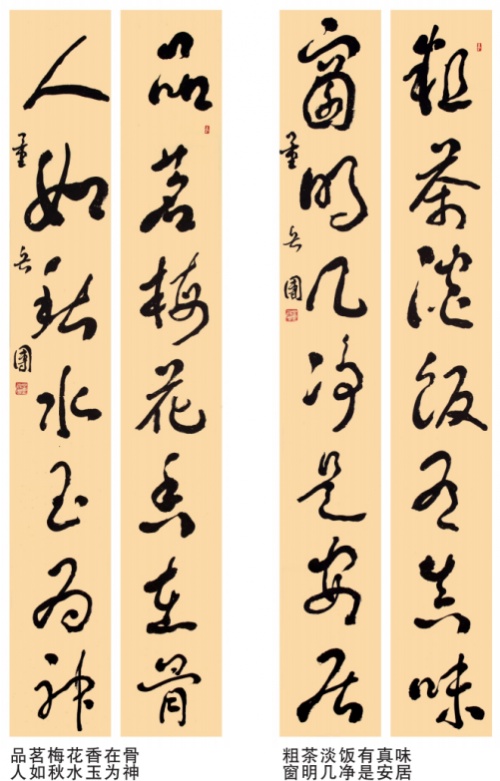 粗茶淡饭有真味
窗明几净是安居
品茗梅花香在骨
人如秋水玉为神
品茗梅花香在骨
人如秋水玉为神
粗茶淡饭有真味
窗明几净是安居